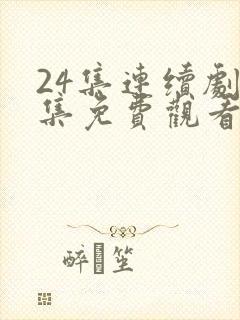 24集連續劇
集免費觀看
醉 坐